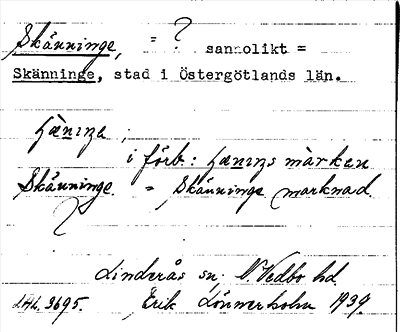 Skänninge, = ? sannolikt =
Skänninge, stad i Östergötlands län.
i förb.: märken
Skänninge = Skänninge marknad.
?
Linderås sn, N. Vedbo hd.
3695. Erik Lönnerholm 1939.